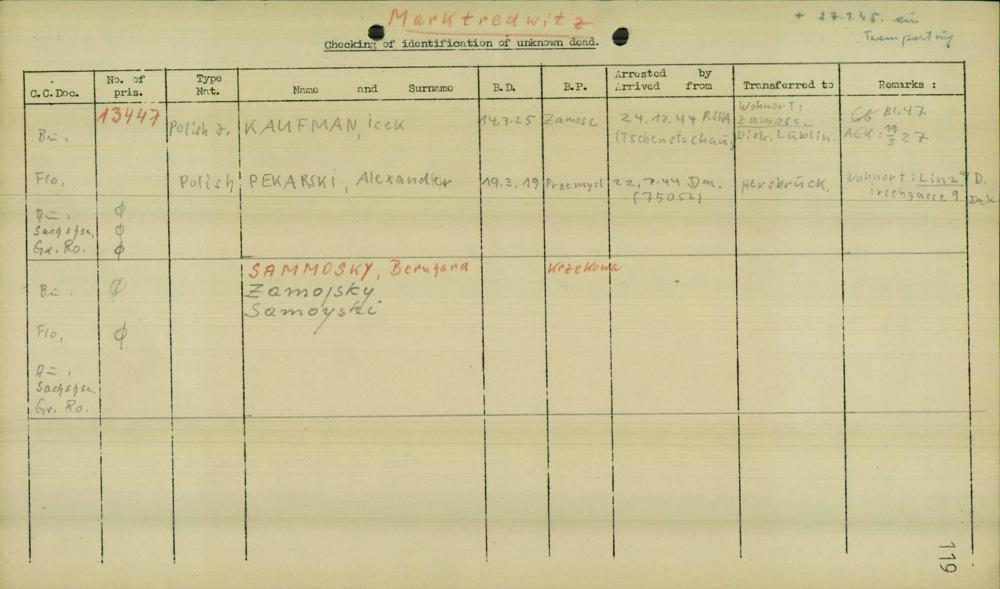 Marktredwitz
+ 27.1.45. ein
Transportzug
Checking of identification of unknown dead.
C.C.Doc. No. of pris. Type Nat. Name and Surname B.D. B.P. Arrested by Arrived from Transferred to Remarks :
13447 Wohnort: Bl. 47
Bu. Polish J. KAUFMAN, icek 14.7.25 Zamosc 24.12.44 RSHA Zamosc. AEK: 19/3 27
(Tschenstochau) Distr. Lublin.
Flo, Polish PEKARSKI, Alexander 19.3.19 Przemysl 22.7.44 Da. Hersbrück. Wohnort: Linz a/D.
(75052) irschgasse 9
Sachshsn.
Gr. Ro. ϕ
SAMMOSKY, Bernhard Krzekowa
Bu. ϕ Zamojsky
Samoyski
Flo, ϕ
Sachshsn.
Gr. Ro.
119